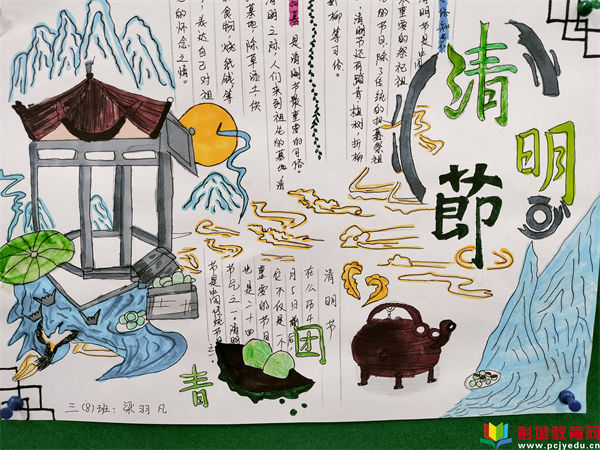 清明節
清明节是中国
最重要的祭祀祖
的节日,除了传统的扫墓祭祖
清明节还有踏青植树,折柳
柳等习俗。
是清明节最重要的习俗。
清明之际,人们来到祖先的墓地,清
墓地,除草添土,供
食物,烧纸钱等
表达自己对祖
的怀念之情。
清明节
在公历4
月5日前后,
它不仅是一个
重要的节日
也是二十四
节气之一,清明
节是中国传统节
青团
三(8)班:梁羽凡
彭城教育网
www.pcjyedu.cn